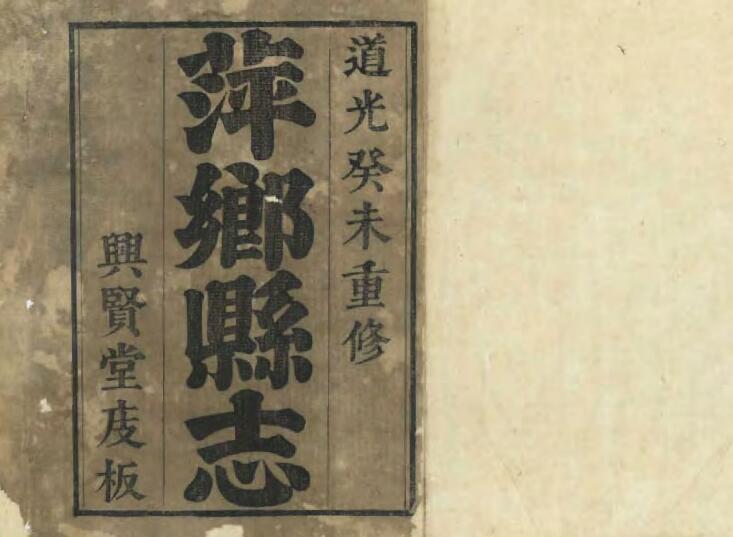 道光癸未重修
萍鄉縣志
興賢堂庋板